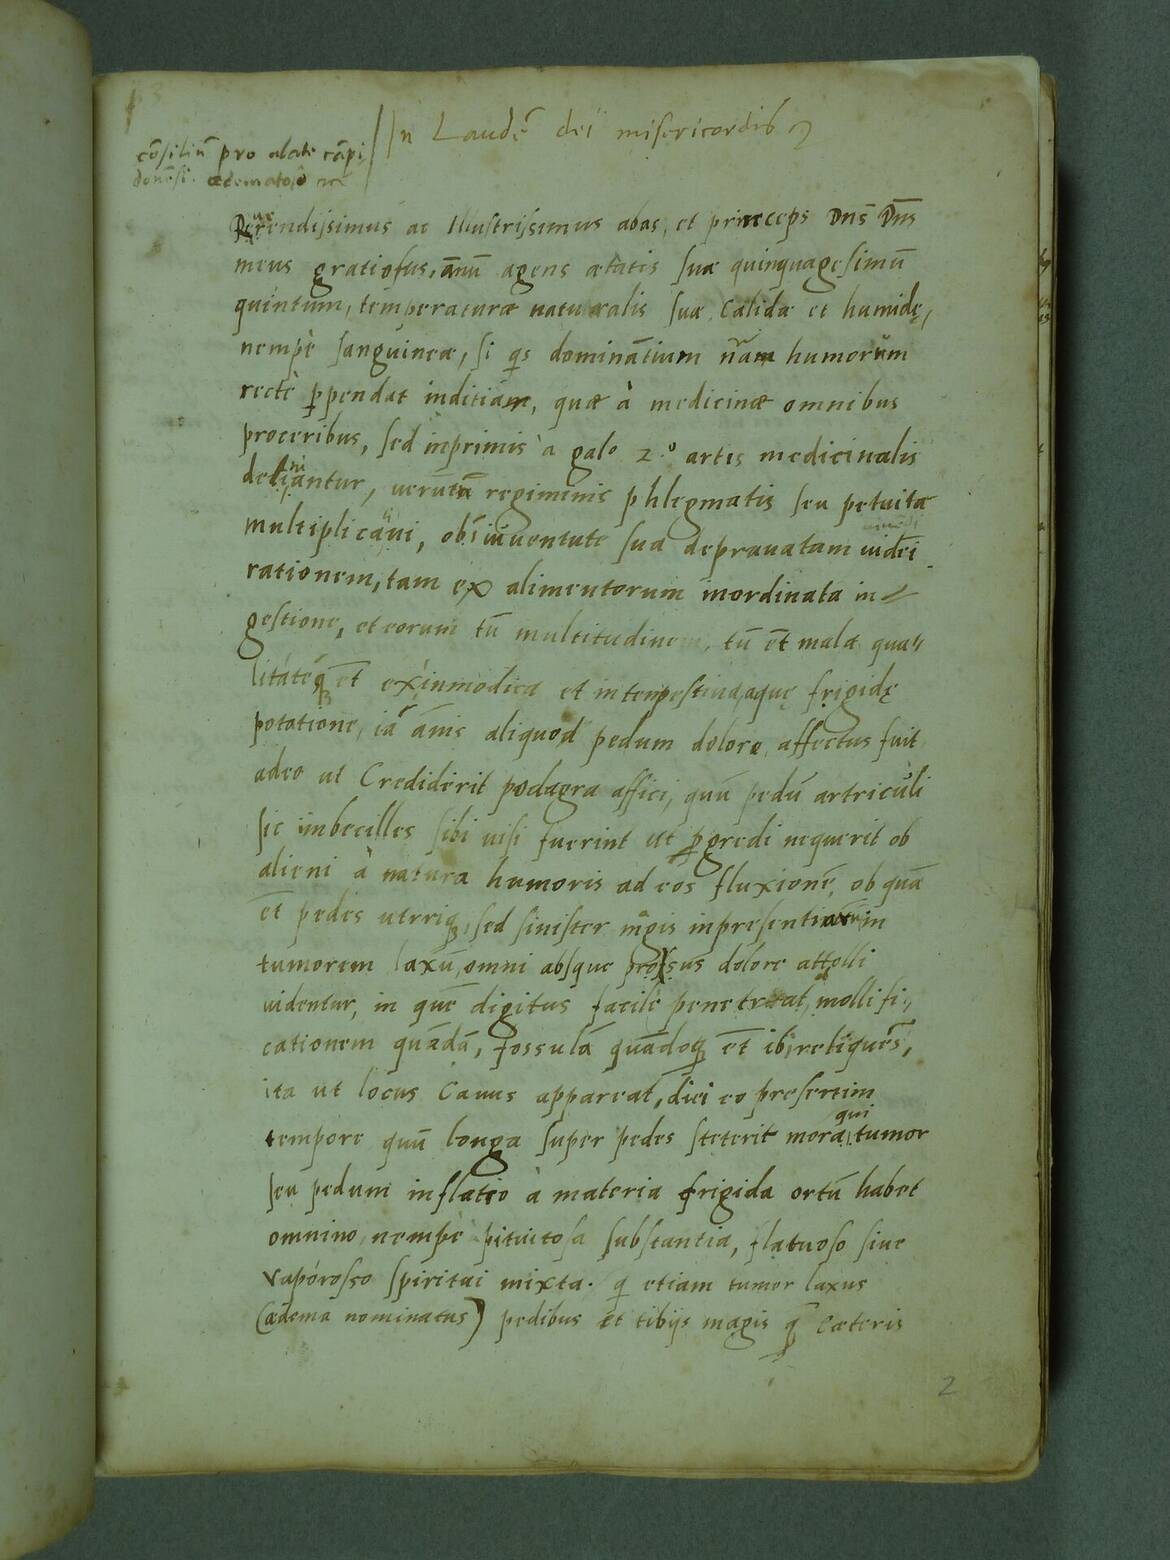 In Laudē dei misericordis
cōsiliū pro abate cāpi
donēsi. œdematoso
Reuerendissimus ac Illustrissimus abas, et princeps Dn̄s Dn̄s
meus gratiosus, ānū agens ætatis suæ quinquagesimū
quintum, temperaturæ naturalis suæ calidæ et humidę,
nempè sanguineæ, si qs dominātium nr̄am humorum
rectè ꝑpendat inditiam, quæ à medicinæ omnibus
proceribus, sed inprimis à galo 2.º artis medicinalis
deliniantur, uerutā regiminis phlegmatis seu petuita
multiplicaui, ob iuuentute sua deprauatam uidei
rationem, tam ex alimentorum inordinata in⸗
gestione, et eorum tū multitudine, tū et̄ mala qua⸗
litateq̨ et̄ ex inmodica et intempestiua aquę frigidę
potatione, iā ānis aliquod pedum dolore affectus fuit
adeo ut Crediderit podagra affici, quū pedū articuli
sic imbecilles sibi uisi fuerint ut ꝓgredi nequerit ob
alieni à natura humoris ad eos fluxionē, ob quā
et̄ pedes utriq̨, sed sinister mgis inpresentiarum in
tumorem laxū, omni absque prorsus dolore attolli
uidentur, in quē digitus facilè penetrat, mollifi⸗
cationem quādā, fossulā quādoq̨ et̄ ibi reliquēs,
ita ut locus Cauus appareat, dici eo presertim
tempore quū longa super pedes steterit mora, qui tumor
seu pedum inflatio à materia frigida ortū habet
omnino, nempè pituitosa substantia, flatuoso siue
vaporosso spiritui mixta. q etiam tumor laxus
(œdema nominatus) pedibus et tibijs magis q̄ cæteris
2